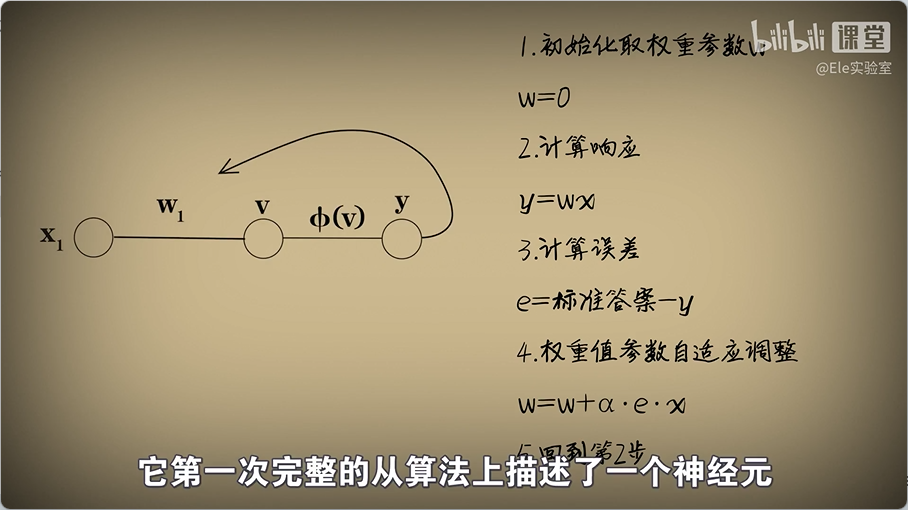 bilibili 课堂
@Ele实验室
1.初始化取权重参数w
w=0
2.计算响应
y=wx
3.计算误差
e=标准答案-y
4.权重值参数自适应调整
w=w+α·e·x
5.回到第2步
x1 w1 v ϕ(v) y
它第一次完整的从算法上描述了一个神经元